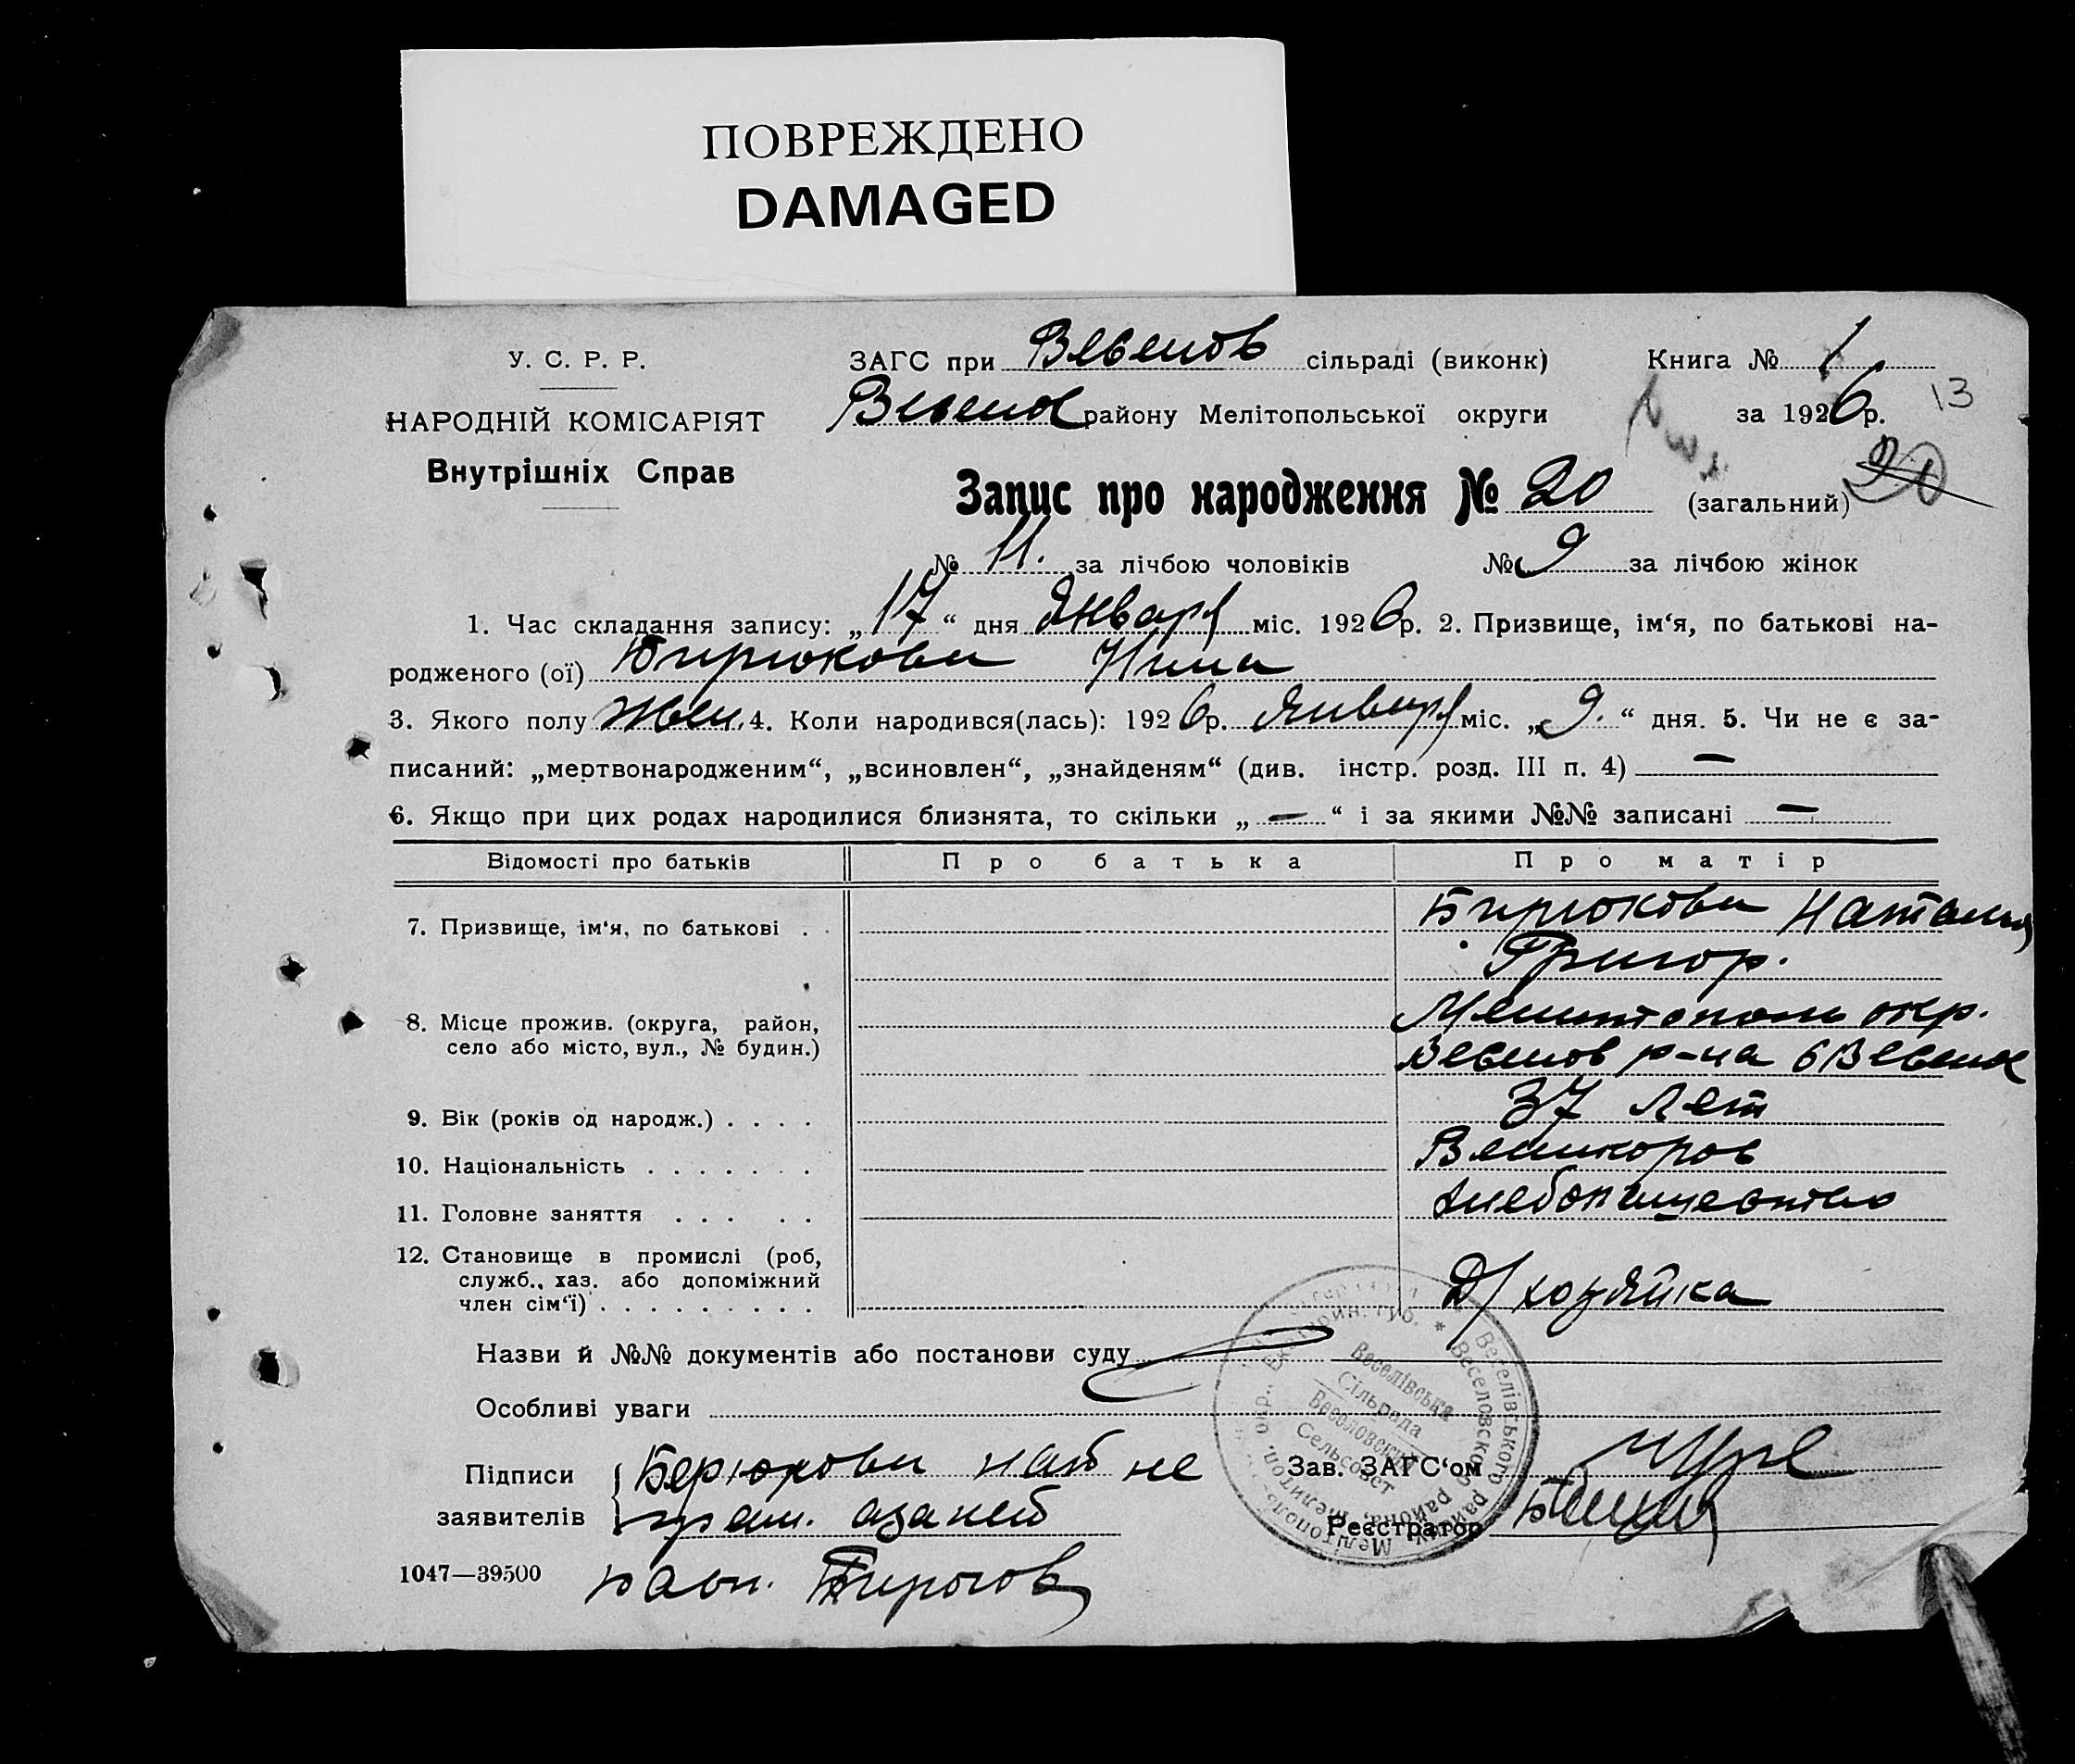 ПОВРЕЖДЕНО
DAMAGED
У. С. Р. Р.
НАРОДНІЙ КОМІСАРІЯТ
Внутрішніх Справ
ЗАГС при Веселов сільраді (виконк)
Веселов району Мелітопольської округи
Книга № 1
за 1926 р.
13
Запис про народження № 20 (загальний) 20
№ 11. за лічбою чоловіків № 9 за лічбою жінок
1. Час складання запису: „17“ дня Января міс. 1926 р. 2. Призвище, ім‘я, по батькові на-
родженого (ої) Бирюкова Нина
3. Якого полу жен. 4. Коли народився(лась): 1926 р. Января міс. „9.“ дня. 5. Чи не є за-
писаний: „мертвонародженим“, „всиновлен“, „знайденям“ (див. інстр. розд. III п. 4) —
6. Якщо при цих родах народилися близнята, то скільки „—“ і за якими №№ записані —
Відомості про батьків Про батька Про матір
7. Призвище, ім‘я, по батькові . . Бирюкова Наталия
Григор.
8. Місце прожив. (округа, район, Мелитополь окр.
село або місто, вул., № будин.) Веселов р-на Веселое
9. Вік (років од народж.) . . . . 37 лет
10. Національність . . . . . . . Великоров
11. Головне заняття . . . . . хлебопашество
12. Становище в промислі (роб,
служб., хаз. або допоміжний
член сім‘ї) . . . . . . . . . Д/хозяйка
Назви й №№ документів або постанови суду
Особливі уваги
Підписи Берюкова нат не
заявителів грам.
1047—39500
Зав. ЗАГС‘ом
Реєстратор
Веселівська
Сільрада
Веселовский
Сельсовет